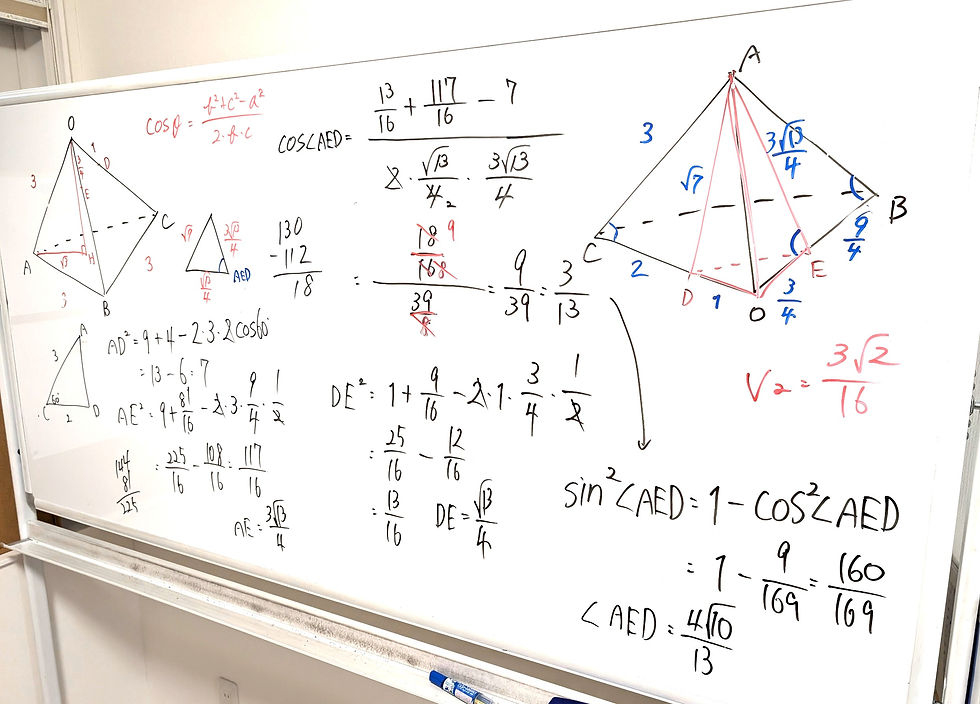 O
1
D
3
3/4
E
C
A
√3
H
3
3
B
cosθ = (b²+c²-a²)/(2·b·c)
√7
3√13/4
√13/4
AED
cos∠AED = (13/16 + 117/16 - 7)/(2·√13/4·3√13/4)
2
130
-112
18
= (18/16)/(39/8) = 9/39 = 3/13
9
8
A
3
60
C
2
D
AD² = 9+4-2·3·2cos60°
= 13-6=7
AE² = 9+81/16-2·3·9/4·1/2
= 225/16 - 108/16 = 117/16
144
81
225
AE = 3√13/4
DE² = 1+9/16-2·1·3/4·1/2
= 25/16 - 12/16
= 13/16 DE = √13/4
A
3
√7
3√13/4
B
C
9/4
2
E
D
1
O
3/4
V₂ = 3√2/16
sin²∠AED = 1-cos²∠AED
= 1 - 9/169 = 160/169
∠AED = 4√10/13